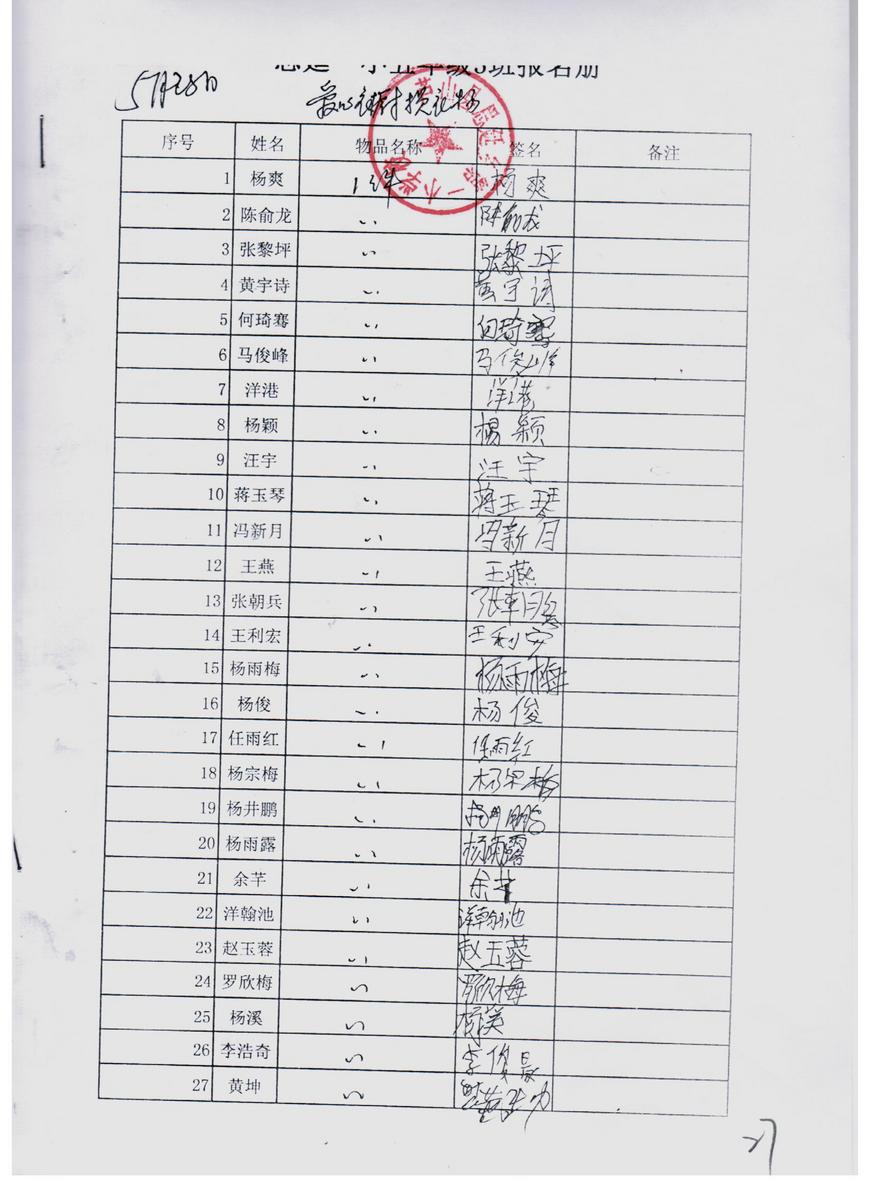 思延一小五年级3班报名册
5月28日
爱心
序号 姓名 物品名称 签名 备注
1 杨爽 1件 杨爽
2 陈俞龙 〃 陈俞龙
3 张黎坪 〃 张黎坪
4 黄宇诗 〃 黄宇诗
5 何琦骞 〃 何琦
6 马俊峰 〃 马俊峰
7 洋港 〃 洋港
8 杨颖 〃 杨颖
9 汪宇 〃 汪宇
10 蒋玉琴 〃 蒋玉琴
11 冯新月 〃 冯新月
12 王燕 〃 王燕
13 张朝兵 〃 张朝
14 王利宏 〃 王利
15 杨雨梅 〃 杨雨梅
16 杨俊 〃 杨俊
17 任雨红 〃 任雨红
18 杨宗梅 〃 杨宗梅
19 杨井鹏 〃 杨井鹏
20 杨雨露 〃 杨雨露
21 余芊 〃 余芊
22 洋翰池 〃 洋翰池
23 赵玉蓉 〃 赵玉蓉
24 罗欣梅 〃 罗欣梅
25 杨溪 〃 杨
26 李浩奇 〃 李俊
27 黄坤 〃
27